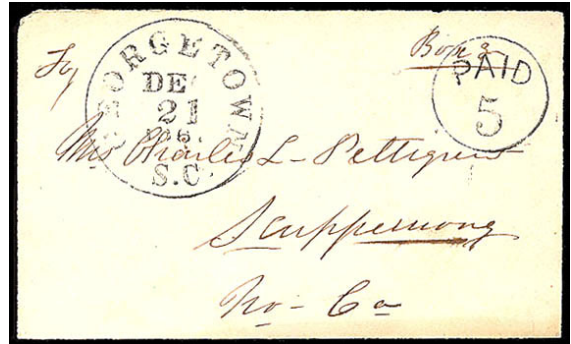 GEORGETOWN
DE
21
S.C.
Box 3
PAID
5
For
Mrs Charles L- Pettigrew
Scuppernong
No- Ca-